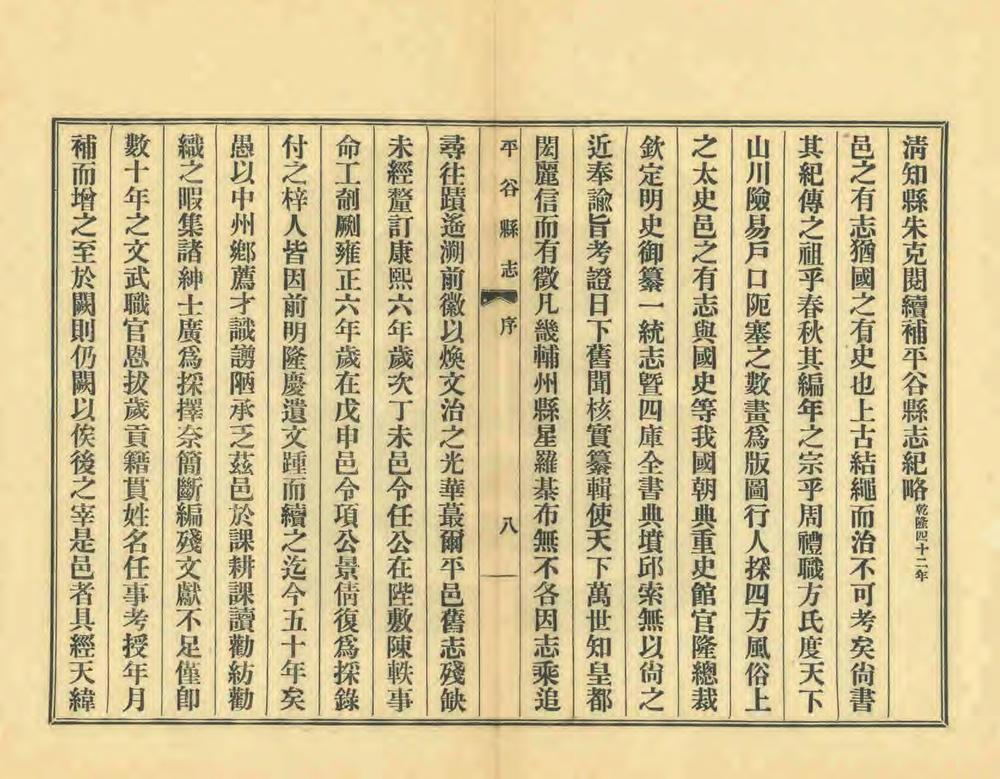 清知縣朱克閱續補平谷縣志紀略乾隆四十二年
邑之有志猶國之有史也上古結繩而治不可考矣尙書
其紀傳之祖乎春秋其編年之宗乎周禮職方氏度天下
山川險易戶口阨塞之數畫爲版圖行人採四方風俗上
之太史邑之有志與國史等我國朝典重史館官隆總裁
欽定明史御纂一統志暨四庫全書典墳邱索無以尙之
近奉諭旨考證日下舊聞核實纂輯使天下萬世知皇都
閎麗信而有徵凡畿輔州縣星羅棊布無不各因志乘追
平谷縣志 序 八
尋往蹟遙溯前徽以煥文治之光華蕞爾平邑舊志殘缺
未經釐訂康熙六年歲次丁未邑令任公在陛敷陳軼事
命工剞劂雍正六年歲在戊申邑令項公景倩復爲採錄
付之梓人皆因前明隆慶遺文踵而續之迄今五十年矣
愚以中州鄕薦才識譾陋承乏茲邑於課耕課讀勸紡勸
織之暇集諸紳士廣爲採擇奈簡斷編殘文獻不足僅卽
數十年之文武職官恩拔歲貢籍貫姓名任事考授年月
補而增之至於闕則仍闕以俟後之宰是邑者具經天緯